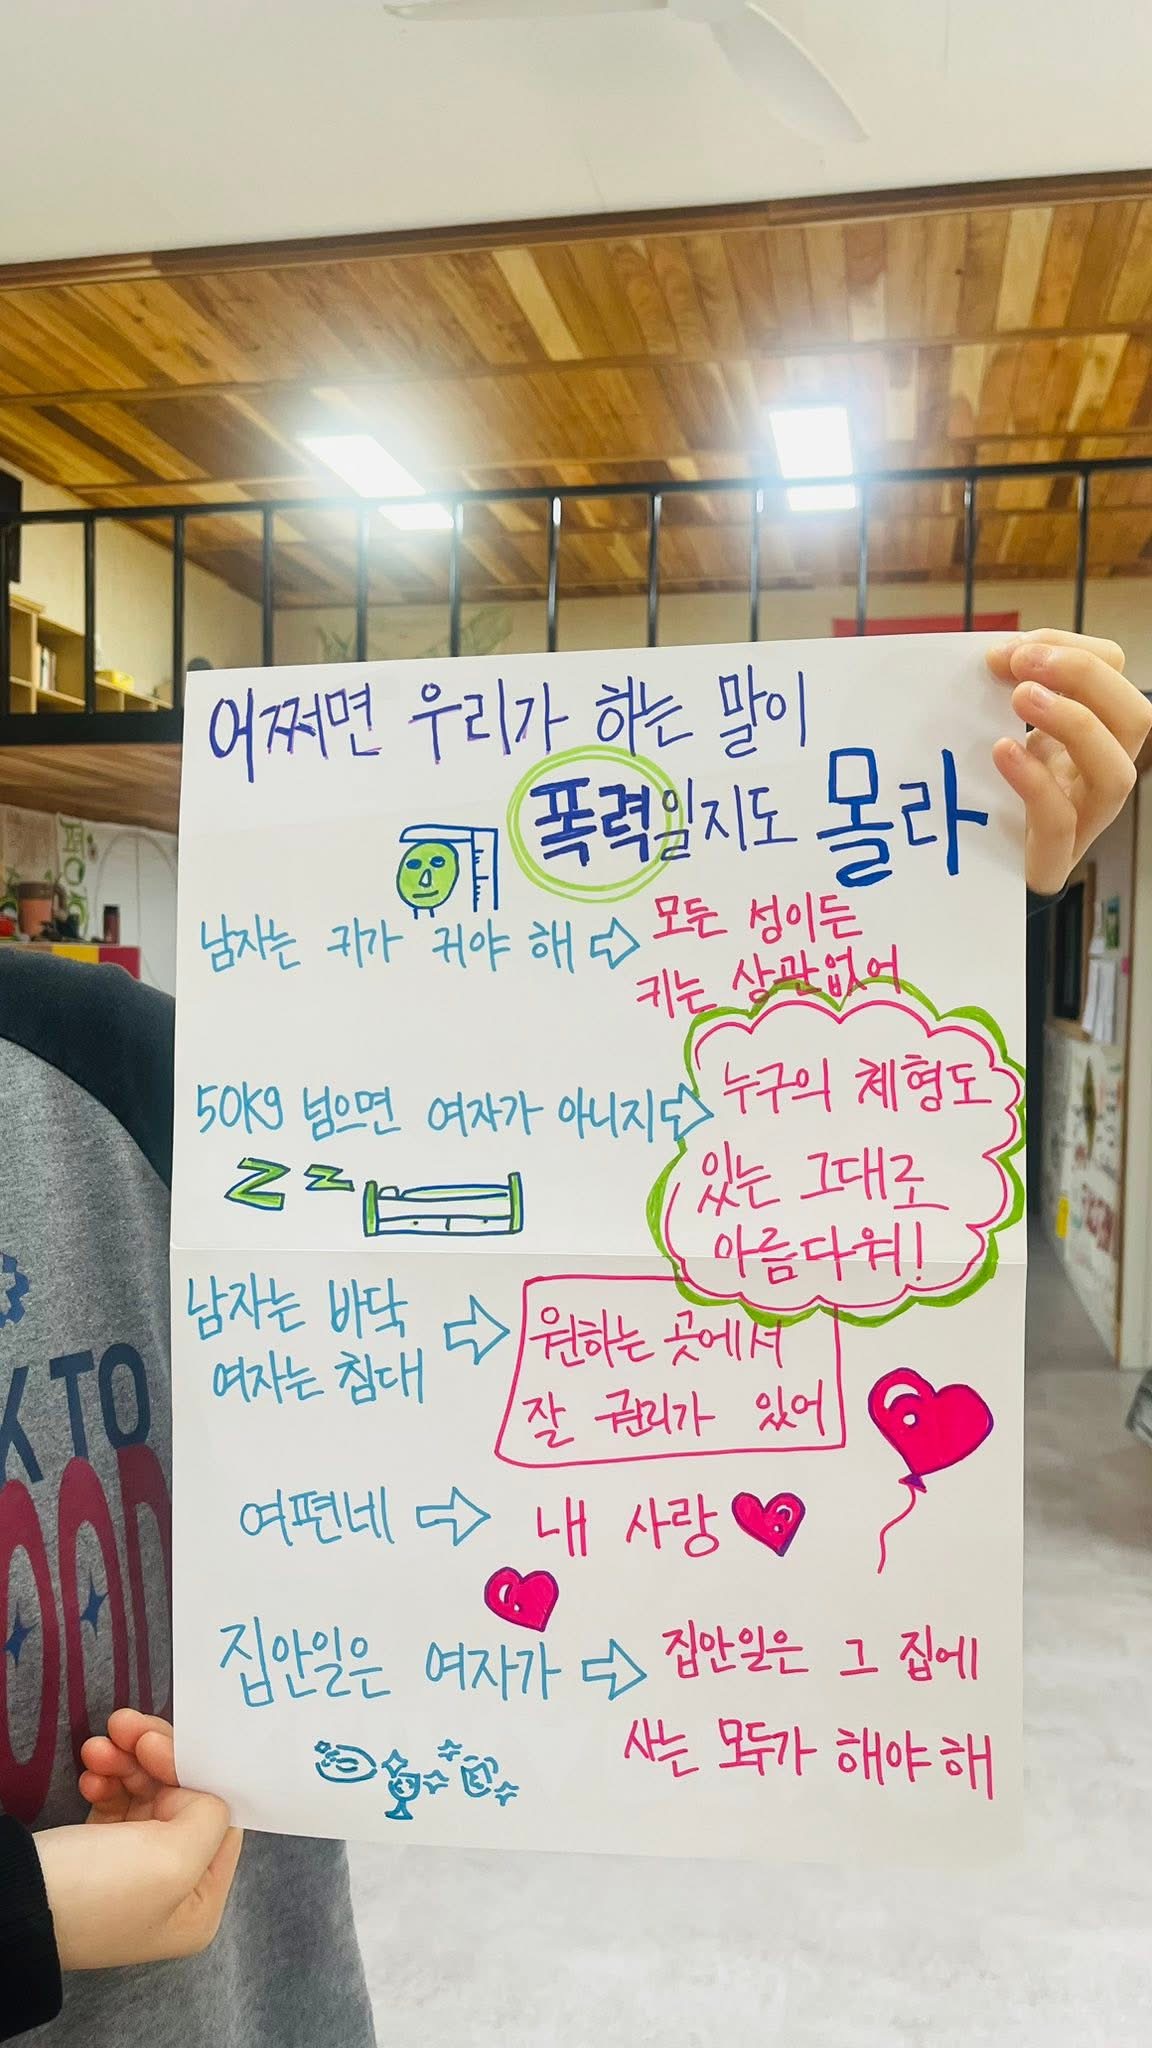 어쩌면 우리가 하는 말이
폭력일지도 몰라
남자는 키가 커야 해
모든 성이든
키는 상관없어
50kg 넘으면 여자가 아니지
누구의 체형도
있는 그대로
아름다워!
남자는 바닥
여자는 침대
원하는 곳에서
잘 권리가 있어
여편네
내 사랑
집안일은 여자가
집안일은 그 집에
사는 모두가 해야 해
K TO